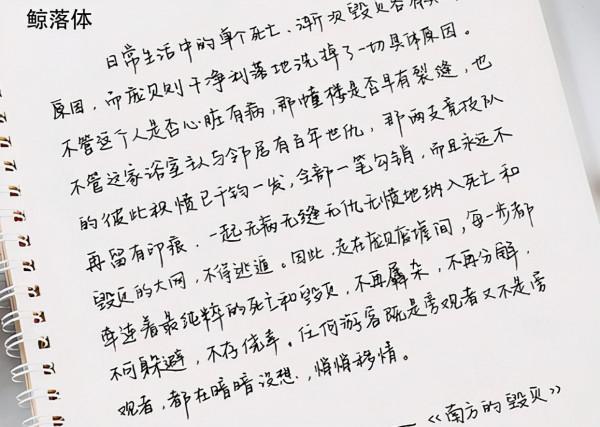 鲸落体
日常生活中的单个死亡、渐次毁灭各有其
原因，而庞贝则干净利落地洗掉了一切具体原因。
不管这个人是否心脏有病，那幢楼是否早有裂缝，也
不管这家浴室主人与邻居有百年世仇，那两支竞技队
的彼此积愤已千钧一发，全部一笔勾销，而且永远不
再留有印痕，一起无病无缝无仇无愤地纳入死亡和
毁灭的大网，不得逃遁。因此，走在庞贝废墟间，每一步都
牵连着最纯粹的死亡和毁灭，不再羼杂，不再分解，
不可躲避，不存侥幸。任何游客既是旁观者又不是旁
观者，都在暗暗设想，悄悄移情。
——《南方的毁灭》